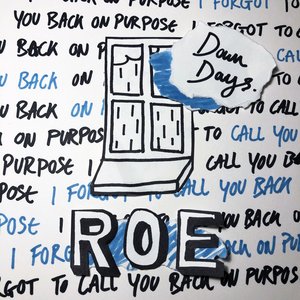 YOU BACK ON PURPOSE I FORGOT TO
Dawn
Days.
YOU BACK ON
BACK ON TO CALL
ON PURPOSE TO CALL YOU
POSE I CALL YOU BACK
I FORGOT TO CALL YOU BACK
POSE
I ON PURPOSE
ROE
TO CALL YOU BACK ON PURPOS